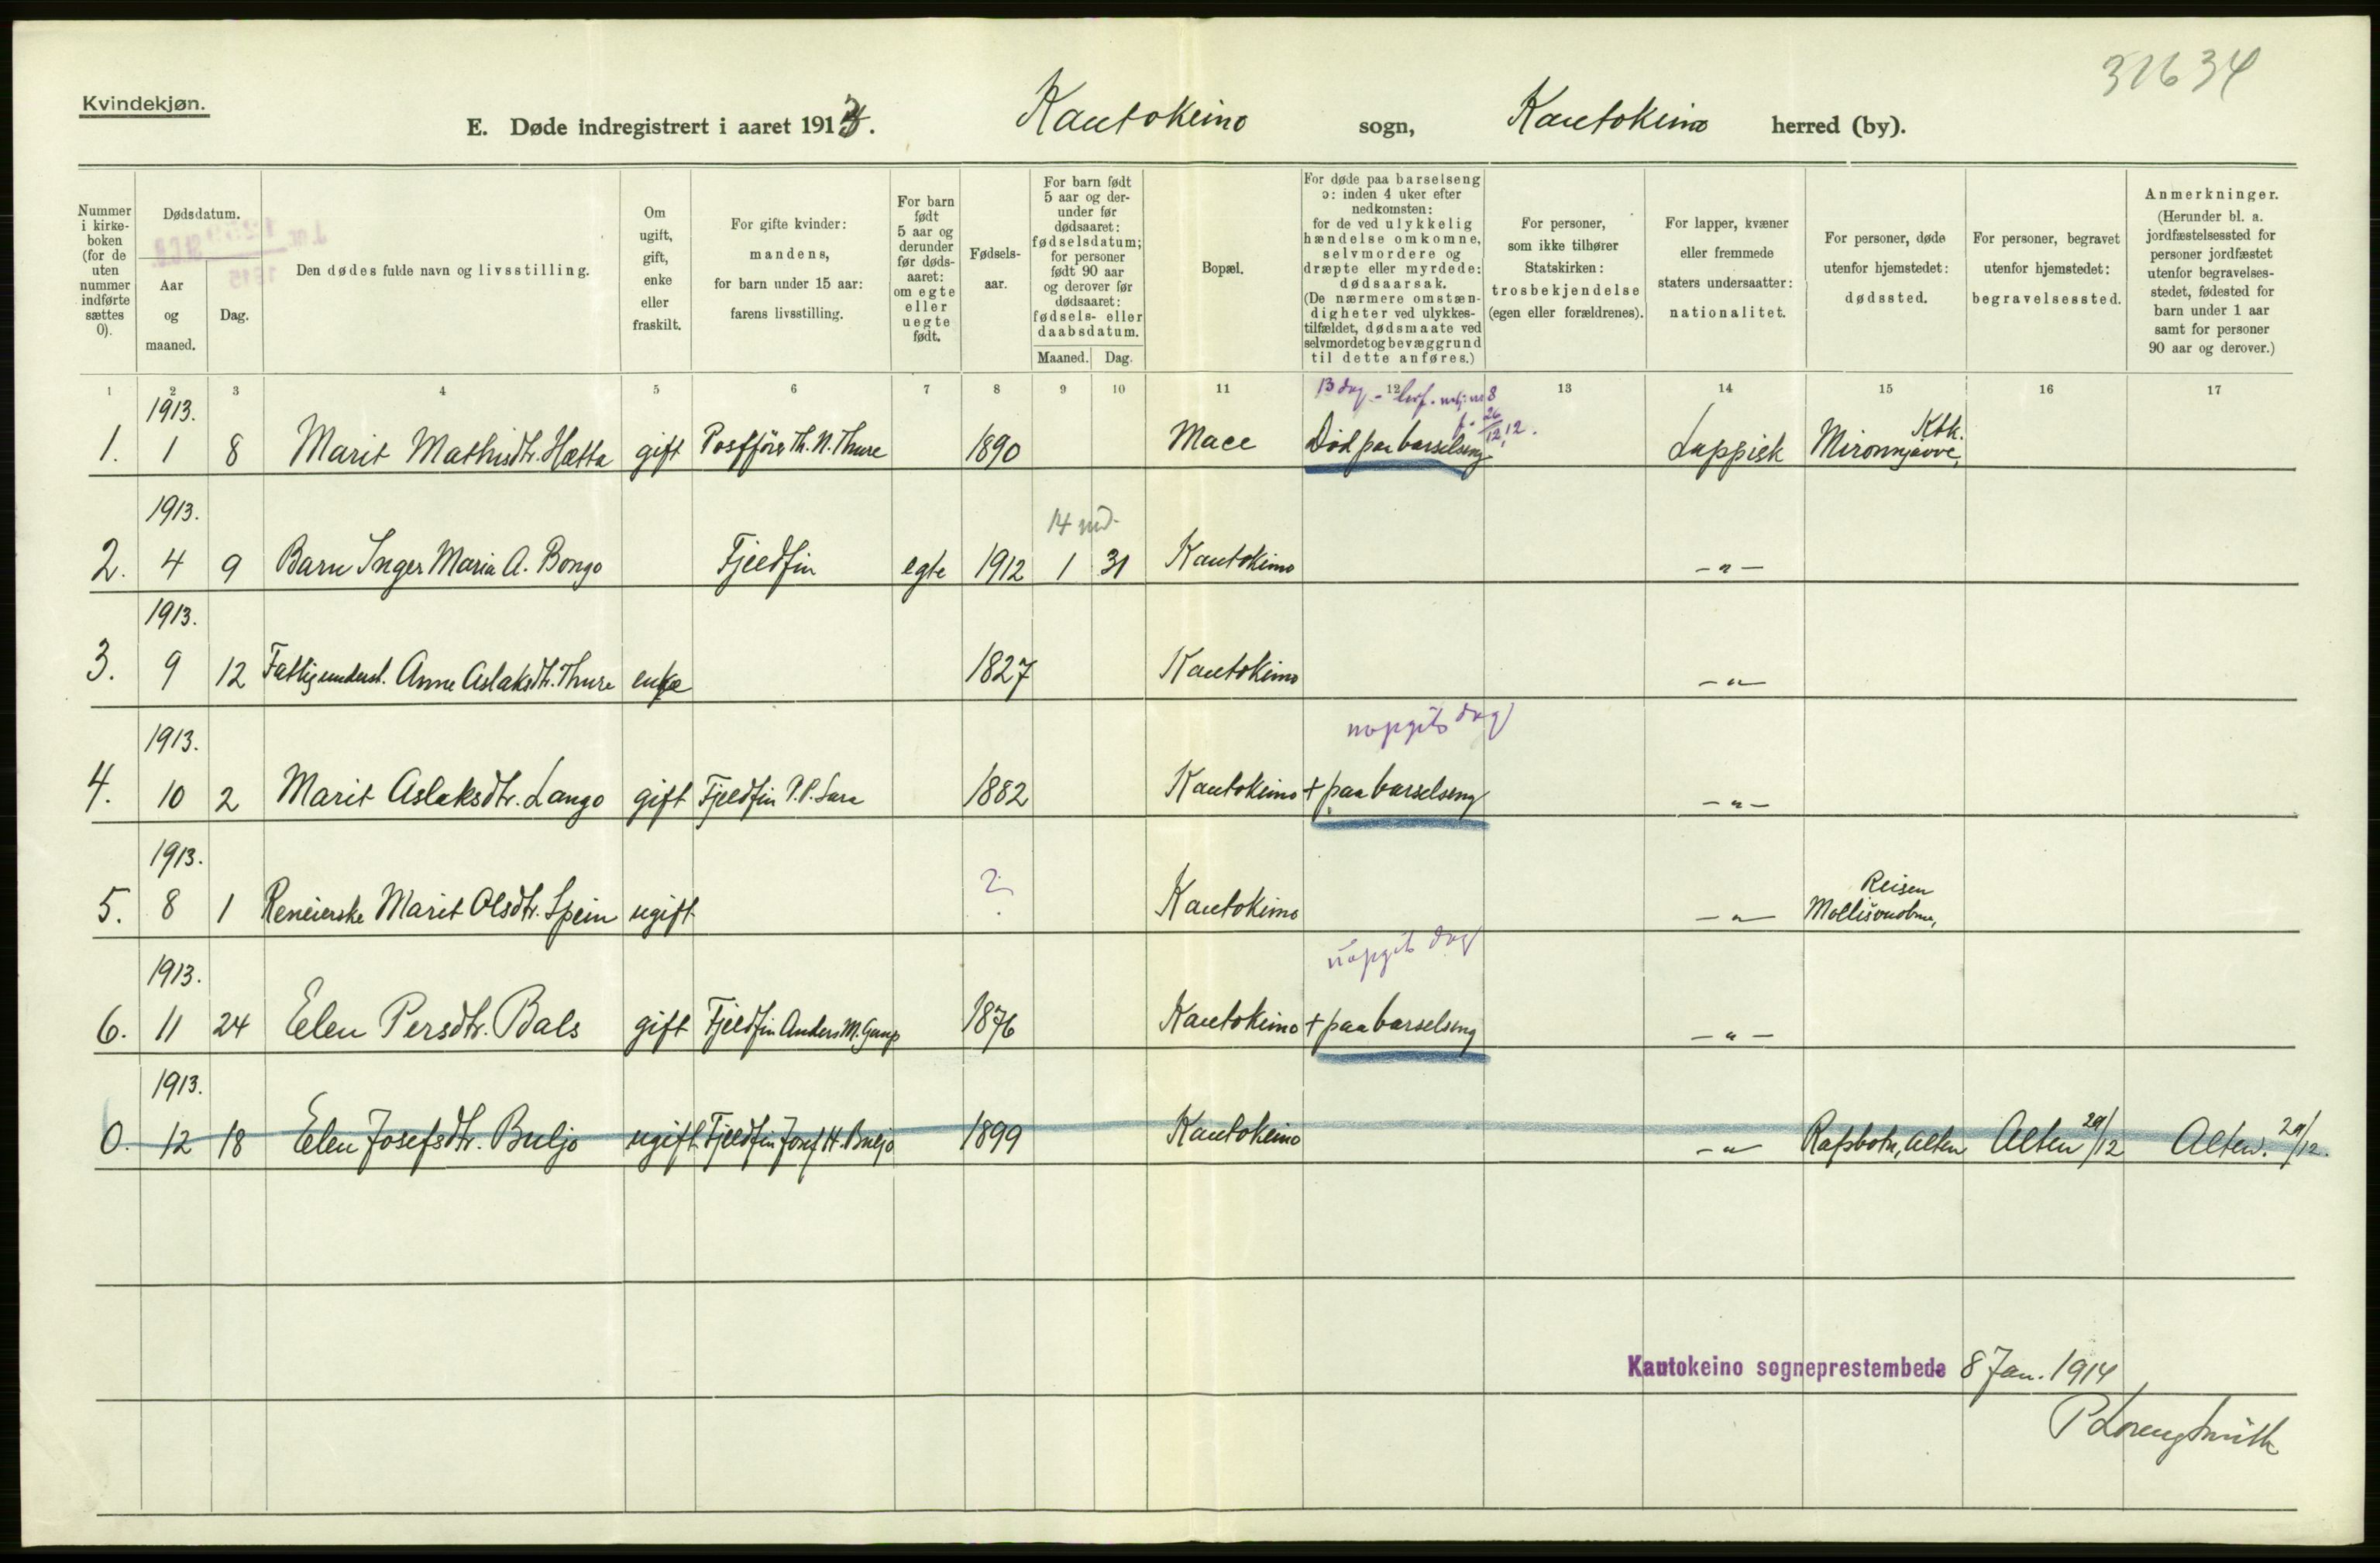 31634
Kvindekjøn.
E. Døde indregistrert i aaret 1913. Kautokeino sogn, Kautokeino herred (by).
Nummer i kirkeboken (for de uten nummer indførte sættes 0).
Dødsdatum.
Aar og maaned.
Dag.
Den dødes fulde navn og livsstilling.
Om ugift, gift, enke eller fraskilt.
For gifte kvinder: mandens, for barn under 15 aar: farens livsstilling.
For barn født 5 aar og derunder før dødsaaret: om egte eller uegte født.
Fødselsaar.
For barn født 5 aar og derunder før dødsaaret: fødselsdatum; for personer født 90 aar og derover før dødsaaret: fødsels- eller daabsdatum.
Maaned. Dag.
Bopæl.
For døde paa barselseng ɔ: inden 4 uker efter nedkomsten: for de ved ulykkelig hændelse omkomne, selvmordere og dræpte eller myrdede: dødsaarsak. (De nærmere omstændigheter ved ulykkestilfældet, dødsmaate ved selvmordet og bevæggrund til dette anføres.)
For personer, som ikke tilhører Statskirken: trosbekjendelse (egen eller forældrenes).
For lapper, kvæner eller fremmede staters undersaatter: nationalitet.
For personer, døde utenfor hjemstedet: dødssted.
For personer, begravet utenfor hjemstedet: begravelsessted.
Anmerkninger. (Herunder bl. a. jordfæstelsessted for personer jordfæstet utenfor begravelsesstedet, fødested for barn under 1 aar samt for personer 90 aar og derover.)
1 2 3 4 5 6 7 8 9 10 11 12 13 14 15 16 17
1913. 13 dag
1. 1 8 Marit Mathisdtr. Hætta gift Postfører Th. N. Thure 1890 Mace Død paa barselseng 26/12 12. Lappisk Mironnjavve, Ktk.
1913. 14 md.
2. 4 9 Barn Inger Maria A. Bongo Fjeldfin egte 1912 1 31 Kautokeino -"-
1913.
3. 9 12 Fattigunderst. Anne Aslaksdtr. Thure enke 1827 Kautokeino -"-
1913. uopgit dag
4. 10 2 Marit Aslaksdtr. Lango gift Fjeldfin P. P. Sara 1882 Kautokeino + paa barselseng -"-
1913.
5. 8 1 Reneierske Marit Olsdtr. Spein ugift ? Kautokeino -"- Mollisvuobme, Reisen
1913. uopgit dag
6. 11 24 Elen Persdtr. Bals gift Fjeldfin Anders M. Gaup 1876 Kautokeino + paa barselseng -"-
1913.
0. 12 18 Elen Josefsdtr. Buljo ugift Fjeldfin Josef H. Buljo 1899 Kautokeino -"- Rafsbotn, Alten Alten 29/12 Alten. 29/12.
Kautokeino sogneprestembede 8 Jan. 1914
P Lorenz Smith